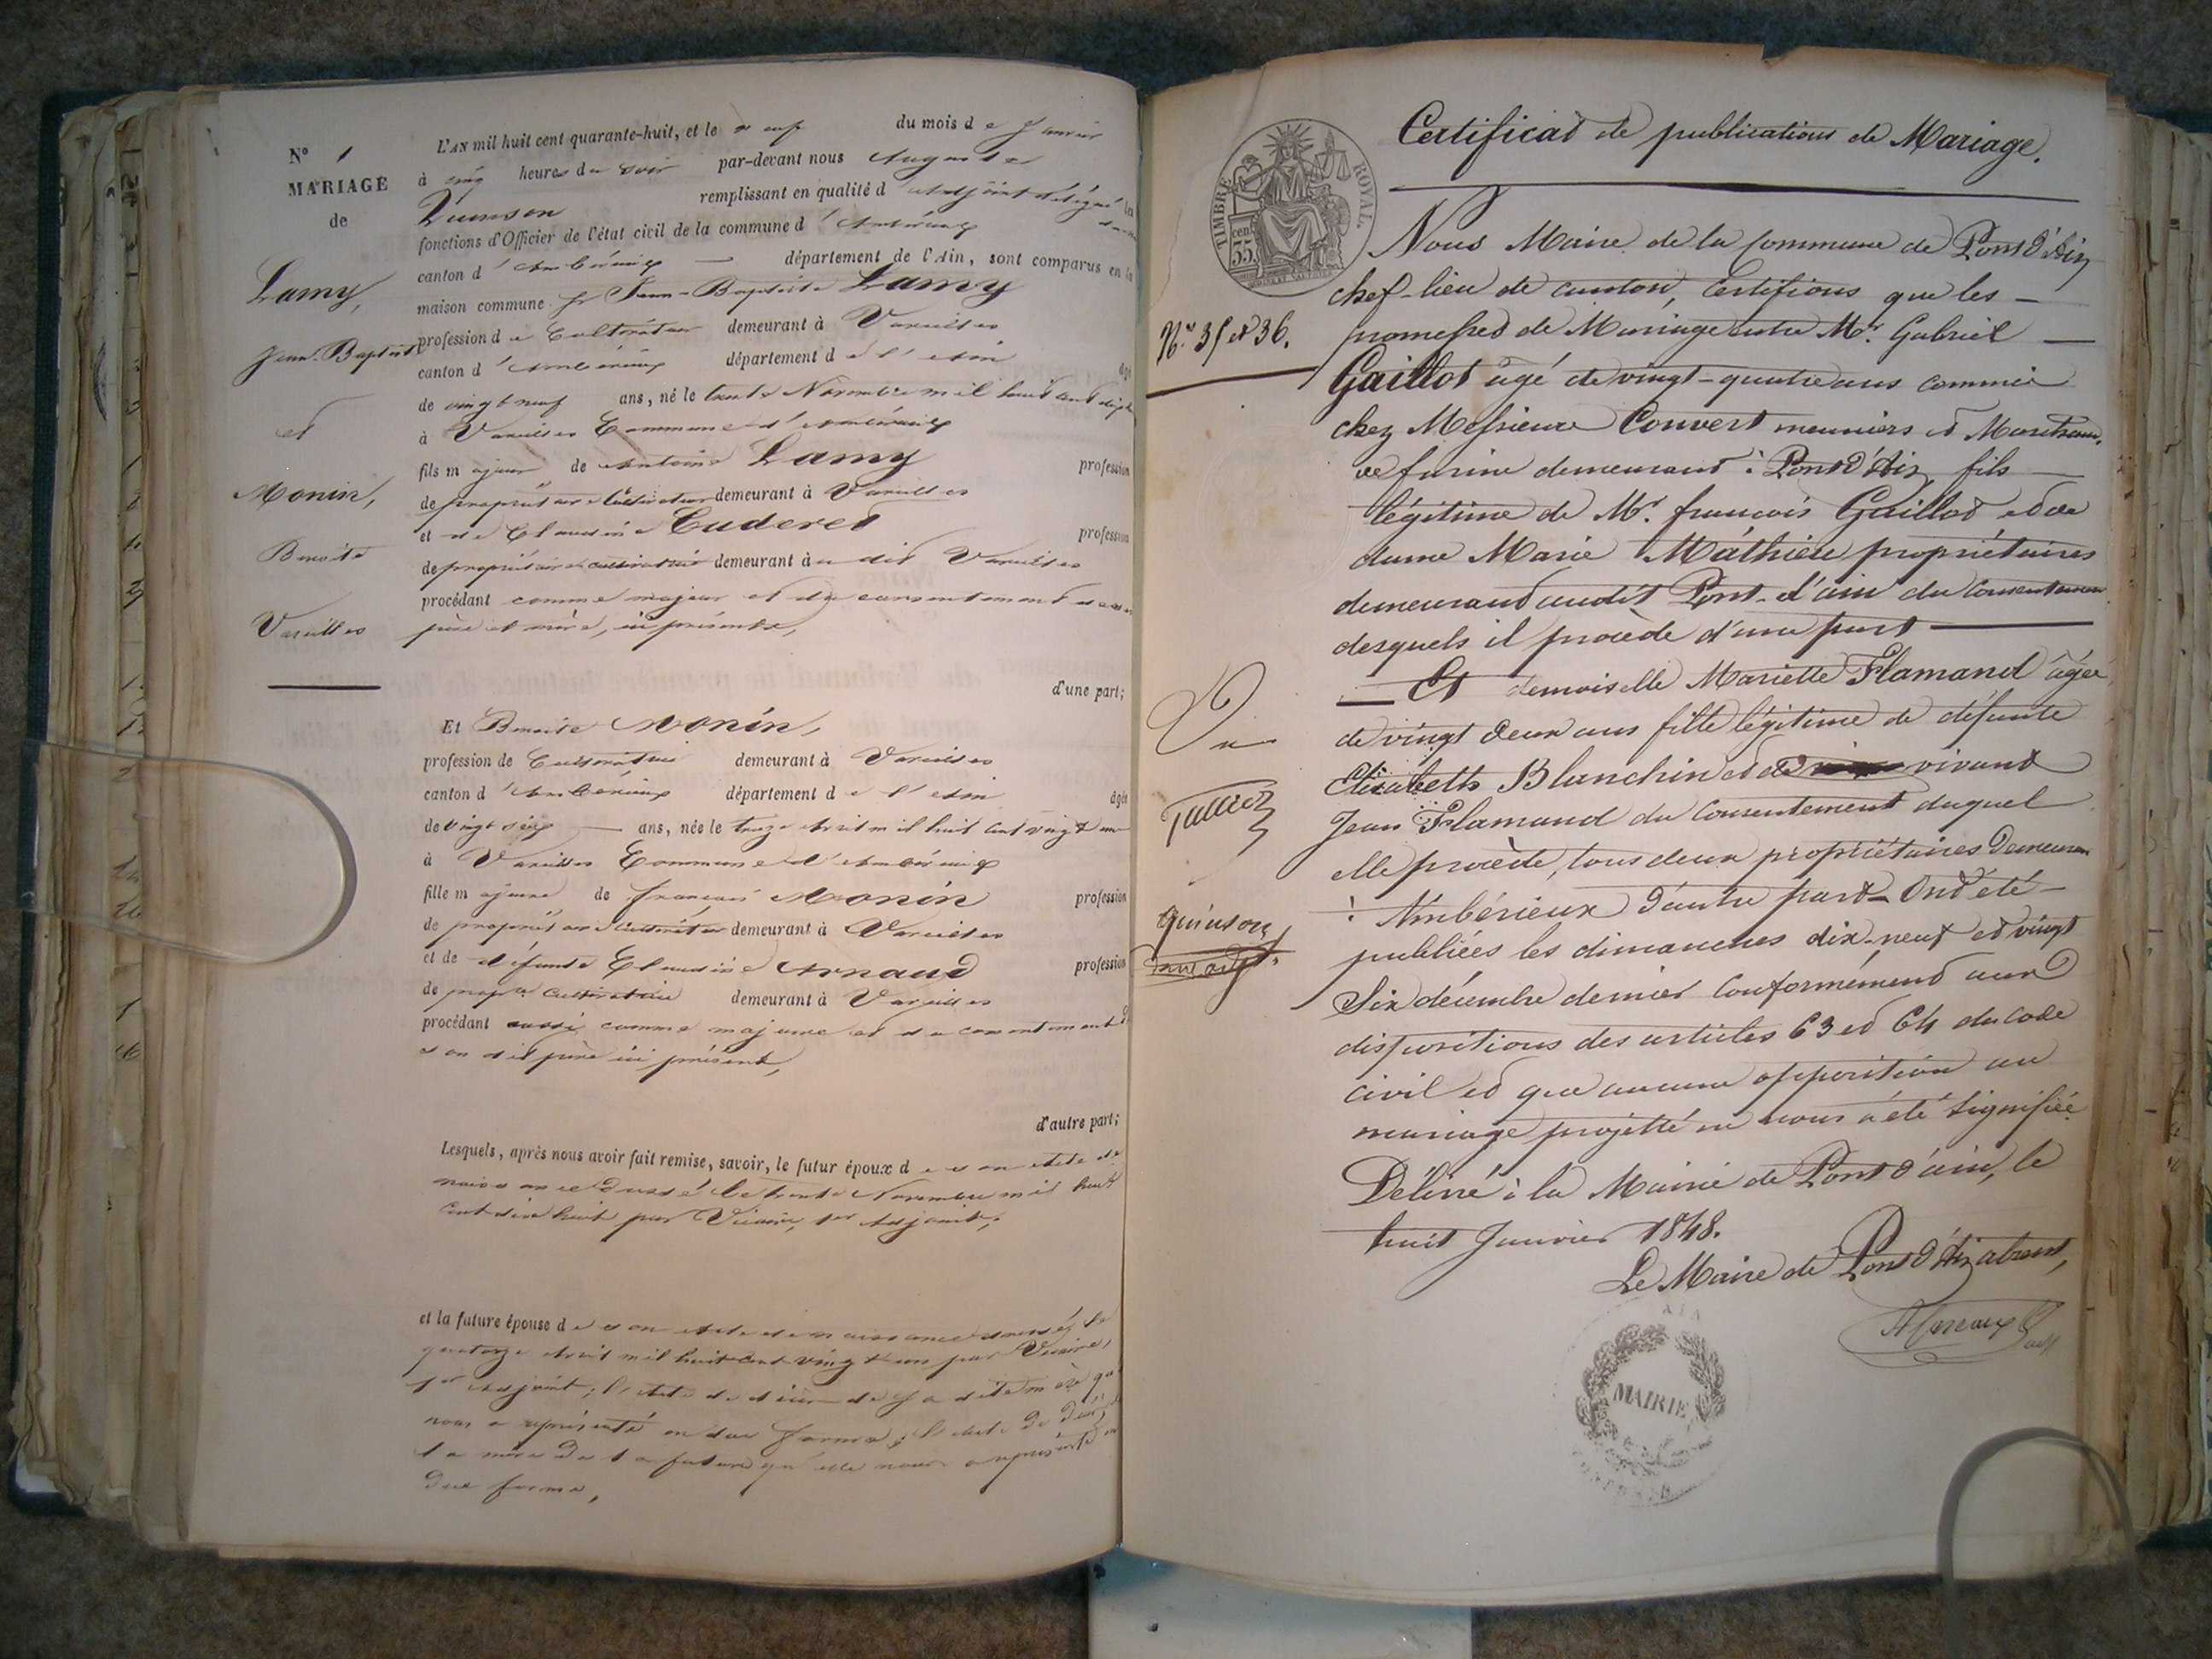 N° 1
MARIAGE
de
Lamy,
Jean-Baptiste
et
Monin,
Benoite
Vareilles
L'AN mil huit cent quarante-huit, et le neuf du mois de Janvier
à cinq heures du soir par-devant nous Auguste
Quinson remplissant en qualité d'Adjoint délégué les
fonctions d'Officier de l'état civil de la commune d'Ambérieux
canton d'Ambérieux — département de l'Ain, sont comparus en la
maison commune Jean-Baptiste Lamy
profession de Cultivateur demeurant à Vareilles
canton d'Ambérieux département de l'Ain âgé
de vingt neuf ans, né le trente Novembre mil huit cent dix
à Vareilles Commune d'Ambérieux
fils majeur de Antoine Lamy profession
de propriétaire Cultivateur demeurant à Vareilles
et de Claudine Cuderet profession
de propriétaire cultivatrice demeurant au dit Vareilles
procédant comme majeur et du consentement de ses
père et mère, ici présents,
d'une part;
Et Benoite Monin,
profession de Cultivatrice demeurant à Vareilles
canton d'Ambérieux département de l'Ain âgée
de vingt six — ans, née le treize Avril mil huit cent vingt un
à Vareilles Commune d'Ambérieux
fille majeure de françois Monin profession
de propriétaire Cultivateur demeurant à Vareilles
et de défunte Claudine Arnaud profession
de propre. cultivatrice demeurant à Vareilles
procédant aussi comme majeure et du consentement de
son dit père ici présent,
d'autre part;
Lesquels, après nous avoir fait remise, savoir, le futur époux de son Acte de
naissance Dressé le trente Novembre mil huit
Cent dix huit par Vicaire, 1er Adjoint;
et la future épouse de son Acte de naissance dressé le
quatorze Avril mil huit Cent vingt un par Vicaire,
1er Adjoint; l'Acte de décès de sa dite mère qu'
nous a représenté en due forme; l'acte de décès de
la mère De la future qu'elle nous a représenté en
Due forme,
Certificat de publications de Mariage.
TIMBRE ROYAL
35 cen
Nos 35 et 36.
Nous Maire de la Commune de Pont d'Ain
chef-lieu de canton, Certifions que les —
promesses de Mariage entre Mr. Gabriel —
Gaillot âgé de vingt-quatre ans commis
chez Messieurs Convert meuniers et Marchands
de farine demeurant à Pont d'Ain, fils —
légitime de Mr. françois Gaillot et de
dame Marie Mathieu propriétaires
demeurant audit Pont-d'ain du Consentement
desquels il procède d'une part —
— Et demoiselle Mariette Flamand âgée
de vingt deux ans fille légitime de défunte
Elizabeth Blanchin et de vivant
Jean Flamand du Consentement duquel
elle procède, tous deux propriétaires Demeurant
à Ambérieux D'autre part — Ont été —
publiées les dimanches dix-neuf et vingt
Six décembre dernier Conformément aux
dispositions des articles 63 et 64 du Code
civil et que aucune opposition au
mariage projetté ne nous a été Signifiée.
Délivré à la Mairie de Pont d'ain, le
huit Janvier 1848.
Le Maire de Pont d'Ain absent,
Vu
Quinson
MAIRIE
AIN